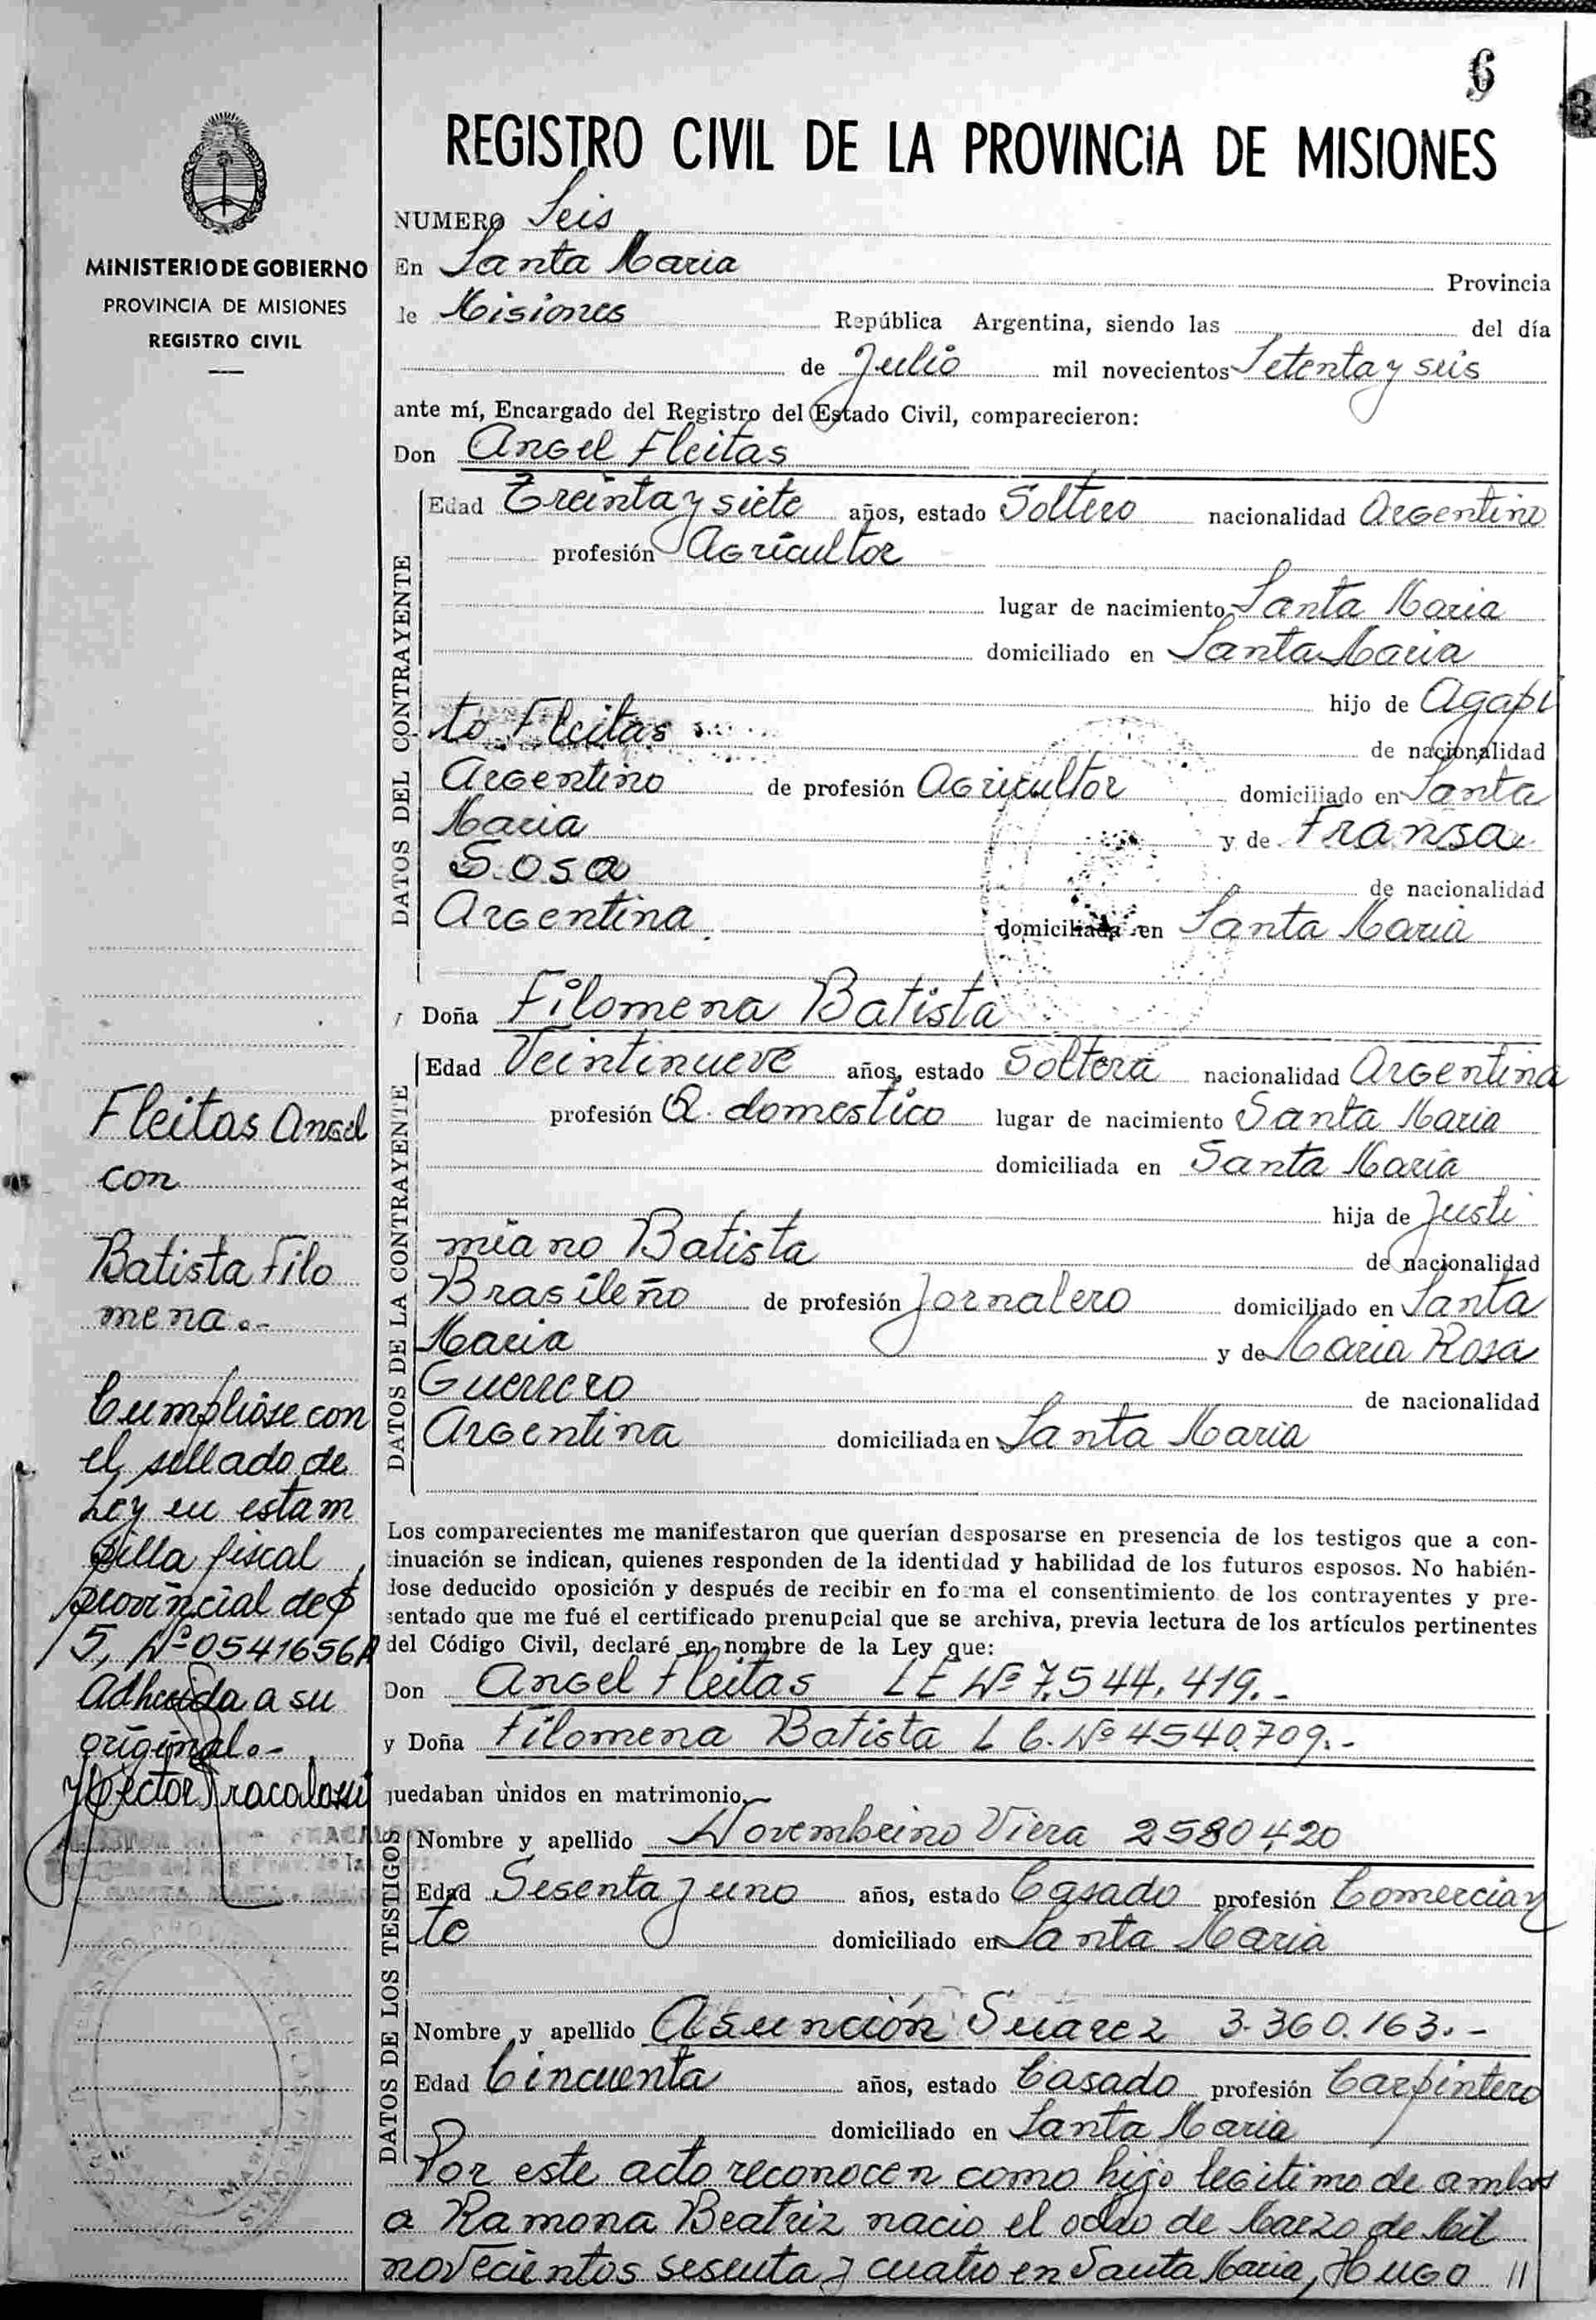 6
REGISTRO CIVIL DE LA PROVINCIA DE MISIONES
MINISTERIO DE GOBIERNO
PROVINCIA DE MISIONES
REGISTRO CIVIL
NUMERO Seis
En Santa Maria Provincia
de Misiones República Argentina, siendo las del día
de Julio mil novecientos Setenta y seis
ante mí, Encargado del Registro del Estado Civil, comparecieron:
Don Angel Fleitas
DATOS DEL CONTRAYENTE
Edad Treinta y siete años, estado Soltero nacionalidad Argentino
profesión Agricultor
lugar de nacimiento Santa Maria
domiciliado en Santa Maria
hijo de Agapi
to Fleitas de nacionalidad
Argentino de profesión Agricultor domiciliado en Santa
Maria y de Fransa
Sosa de nacionalidad
Argentina domiciliada en Santa Maria
y Doña Filomena Batista
DATOS DE LA CONTRAYENTE
Edad Veintinueve años, estado Soltera nacionalidad Argentina
profesión Q. domestico lugar de nacimiento Santa Maria
domiciliada en Santa Maria
hija de Justi
miano Batista de nacionalidad
Brasileño de profesión Jornalero domiciliado en Santa
Maria y de Maria Rosa
Guerrero de nacionalidad
Argentina domiciliada en Santa Maria
Los comparecientes me manifestaron que querían desposarse en presencia de los testigos que a con-
tinuación se indican, quienes responden de la identidad y habilidad de los futuros esposos. No habién-
dose deducido oposición y después de recibir en forma el consentimiento de los contrayentes y pre-
sentado que me fué el certificado prenupcial que se archiva, previa lectura de los artículos pertinentes
del Código Civil, declaré en nombre de la Ley que:
Don Angel Fleitas LE Nº 7.544.419.-
y Doña Filomena Batista L C. Nº 4540.709.-
quedaban unidos en matrimonio.
DATOS DE LOS TESTIGOS
Nombre y apellido Novembrino Viera 2580420
Edad Sesenta y uno años, estado Casado profesión Comercian
te domiciliado en Santa Maria
Nombre y apellido Asunción Suarez 3.360.163.-
Edad Cincuenta años, estado Casado profesión Carpintero
domiciliado en Santa Maria
Por este acto reconocen como hijo legitimo de ambos
a Ramona Beatriz nacio el ocho de Marzo de Mil
novecientos sesenta y cuatro en Santa Maria, Hugo //
Fleitas Angel
con
Batista Filo
mena.-
Cumplióse con
el sellado de
Ley en estam
pilla fiscal
provincial de $
5, Nº 0541656A
Adherida a su
original.-
Hector Fracalossi